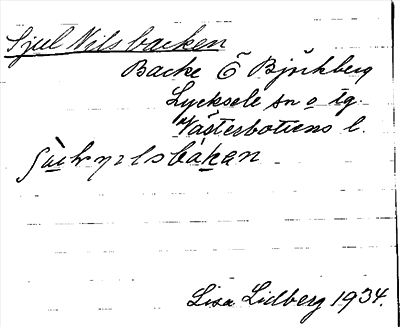 Sjul Nils backen
Backe Ö Björkberg
Lycksele sn o tg.
Västerbottens l.
Lisa Lidberg 1934.